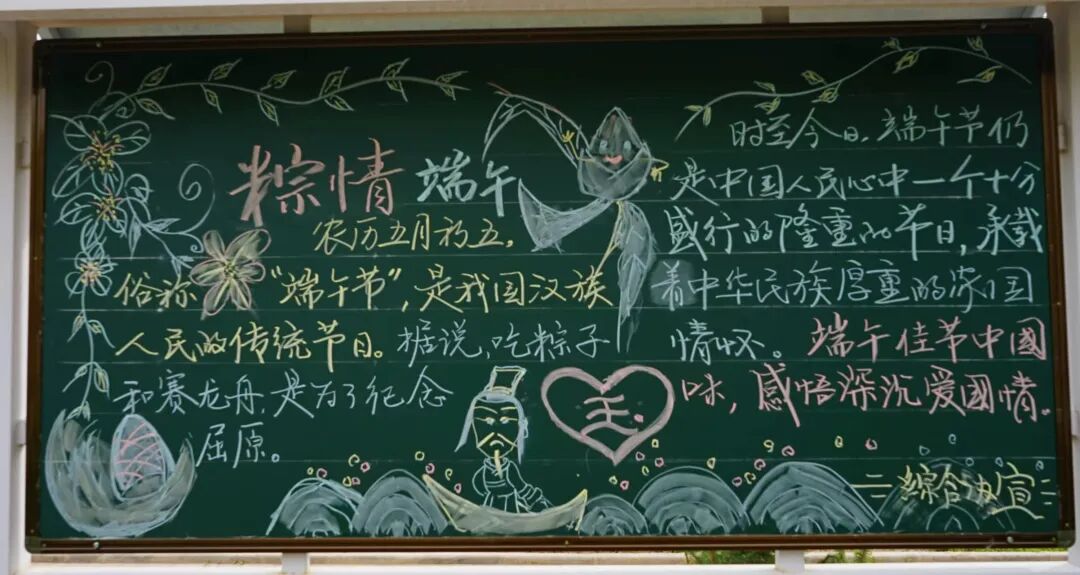 粽情 端午
农历五月初五,
俗称“端午节”,是我国汉族
人民的传统节日。据说,吃粽子
和赛龙舟,是为了纪念
屈原。
玉
时至今日,端午节仍
是中国人民心中一个十分
盛行的隆重的节日,承载
着中华民族厚重的国
情怀。端午佳节中國
味,感悟深沉爱國情。
二綜合办宣二